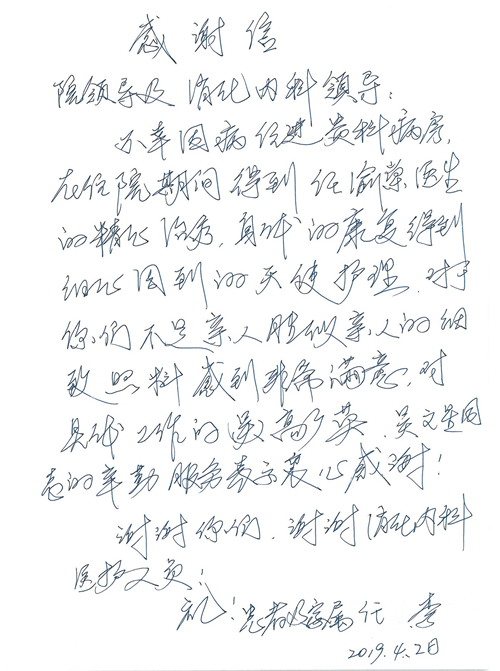 感谢信
院领导及消化内科领导：
不幸因病住进贵科病房，
在住院期间得到任渝棠医生
的精心治疗，身体的康复得到
细心周到的天使护理，对于
你们不是亲人胜似亲人的细
致照料感到非常满意，对
具体工作的严高英、吴文星同
志的辛勤服务表示衷心感谢！
谢谢你们，谢谢消化内科
医护人员！
礼！患者及家属任 李
2019.4.2日